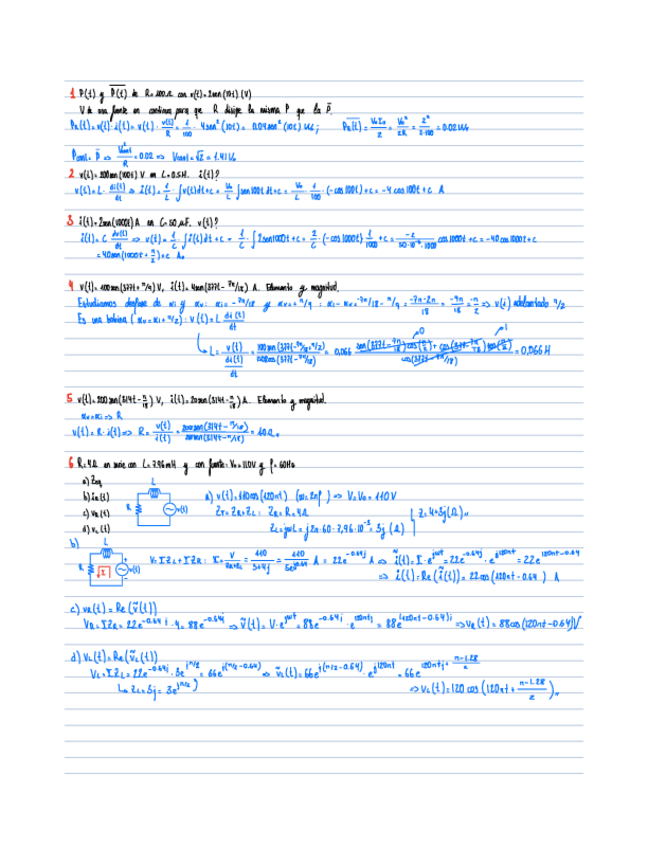 1 P(t) y P̅(t) de R=100Ω con v(t)=2sen(10t) (V)
V de una fuente en continua para que R disipe la misma P que la P̅.
P_R(t)=v(t)·i(t)=v(t)·v(t)/R=1/100·4sen²(10t)=0.04sen²(10t) W; P̅_R(t)=V₀I₀/2=V₀²/2R=2²/2·100=0.02W
P_cont=P̅ ⇒ V²cont/R=0.02 ⇒ Vcont=√2=1.41V
2 v(t)=200sen(100t) V en L=0.5H. i(t)?
v(t)=L·di(t)/dt ⇒ i(t)=1/L·∫v(t)dt+c=V₀/L∫sen100t dt+c=V₀/L·1/100·(-cos100t)+c=-4cos100t+c A
3 i(t)=2sen(1000t)A en C=50μF. v(t)?
i(t)=C dv(t)/dt ⇒ v(t)=1/C·∫i(t)dt+c=1/C·∫2sen1000t+c=2/C·(-cos1000t)1/1000+c=-2/50·10⁻⁶·1000 cos1000t+c=-40cos1000t+c
=40sen(1000t+π/2)+c A
4 v(t)=100sen(377t+π/9) V, i(t)=4sen(377t-7π/18) A. Elemento y magnitud.
Estudiamos desfase de αi y αv: αi=-7π/18 y αv=+π/9: αi-αv=-7π/18-π/9=-7π-2π/18=-9π/18=-π/2 ⇒ v(t) adelantado π/2
Es una bobina (αv=αi+π/2): v(t)=L di(t)/dt
↳ L=v(t)/di(t)/dt=100sen(377t-7π/18+π/2)/1508cos(377t-7π/18)=0.066 sen(377t-7π/18)cos(π/2)+cos(377-7π/18)sen(π/2)/cos(377t-7π/18)=0,066H
0 1
5 v(t)=200sen(314t-π/18) V, i(t)=20sen(314t-π/18)A. Elemento y magnitud.
αv=αi ⇒ R
v(t)=R·i(t) ⇒ R=v(t)/i(t)=200sen(314t-π/18)/20sen(314t-π/18)=10Ω
6 R=4Ω en serie con L=7.96mH y con fuente: V₀=110V y f=60Hz
a) Zeq
b) i(t)
c) v_R(t)
d) v_L(t)
L R v(t)
a) v(t)=110cos(120πt) (ω=2πf) ⇒ V=V₀=110V
Z_T=Z_R+Z_L: Z_R=R=4Ω
Z_L=jωL=j2π·60·7,96·10⁻³=3j (Ω)
Z=4+3j(Ω)
b)
L R I v(t)
V=IZ_L+IZ_R: I=V/Z_R+Z_L=110/3+4j=110/5e^0.64 A=22e^-0.64j A ⇒ ĩ(t)=I·e^jωt=22e^-0.64j·e^j120πt=22e^120πt-0.64
⇒ i(t)=Re(ĩ(t))=22cos(120πt-0.64) A
c) v_R(t)=Re(ṽ(t))
V_R=IZ_R=22e^-0.64j·4=88e^-0.64j ⇒ ṽ(t)=V·e^jωt=88e^-0.64j·e^120πtj=88e^(120πt-0.64)j ⇒ v_R(t)=88cos(120πt-0.64)V
d) v_L(t)=Re(ṽ_L(t))
V_L=IZ_L=22e^-0.64j·3e^jπ/2=66e^j(π/2-0.64) ⇒ ṽ_L(t)=66e^j(π/2-0.64)·e^j120πt=66e^120πtj+π-1.28/2
↳ Z_L=3j=3e^j(π/2)
⇒ v_L(t)=120cos(120πt+π-1.28/2)